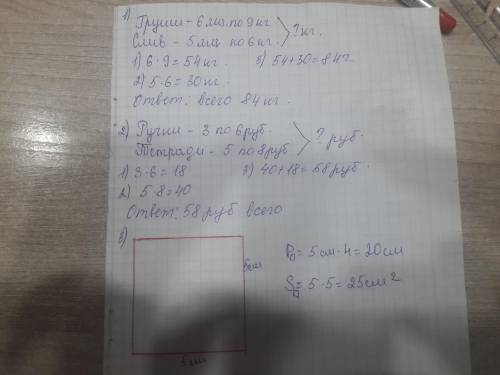 1)
Груши - 6 ящ. по 9 кг
Слив - 5 ящ по 6 кг. ? кг.
1) 6·9=54кг. 3) 54+30=84г.
2) 5·6=30кг.
Ответ: всего 84 кг.
2) Ручки - 3 по 6 руб.
Тетради - 5 по 8 руб ? руб.
1) 3·6=18 3) 40+18=58 руб.
2) 5·8=40
Ответ: 58 руб всего
3)
5см P=5см·4=20см
S=5·5=25см²
5см